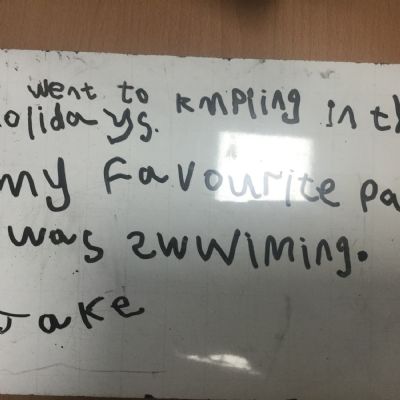 went to kmpling in th
olidays.
my favourite pa
was zwwiming.
Jake